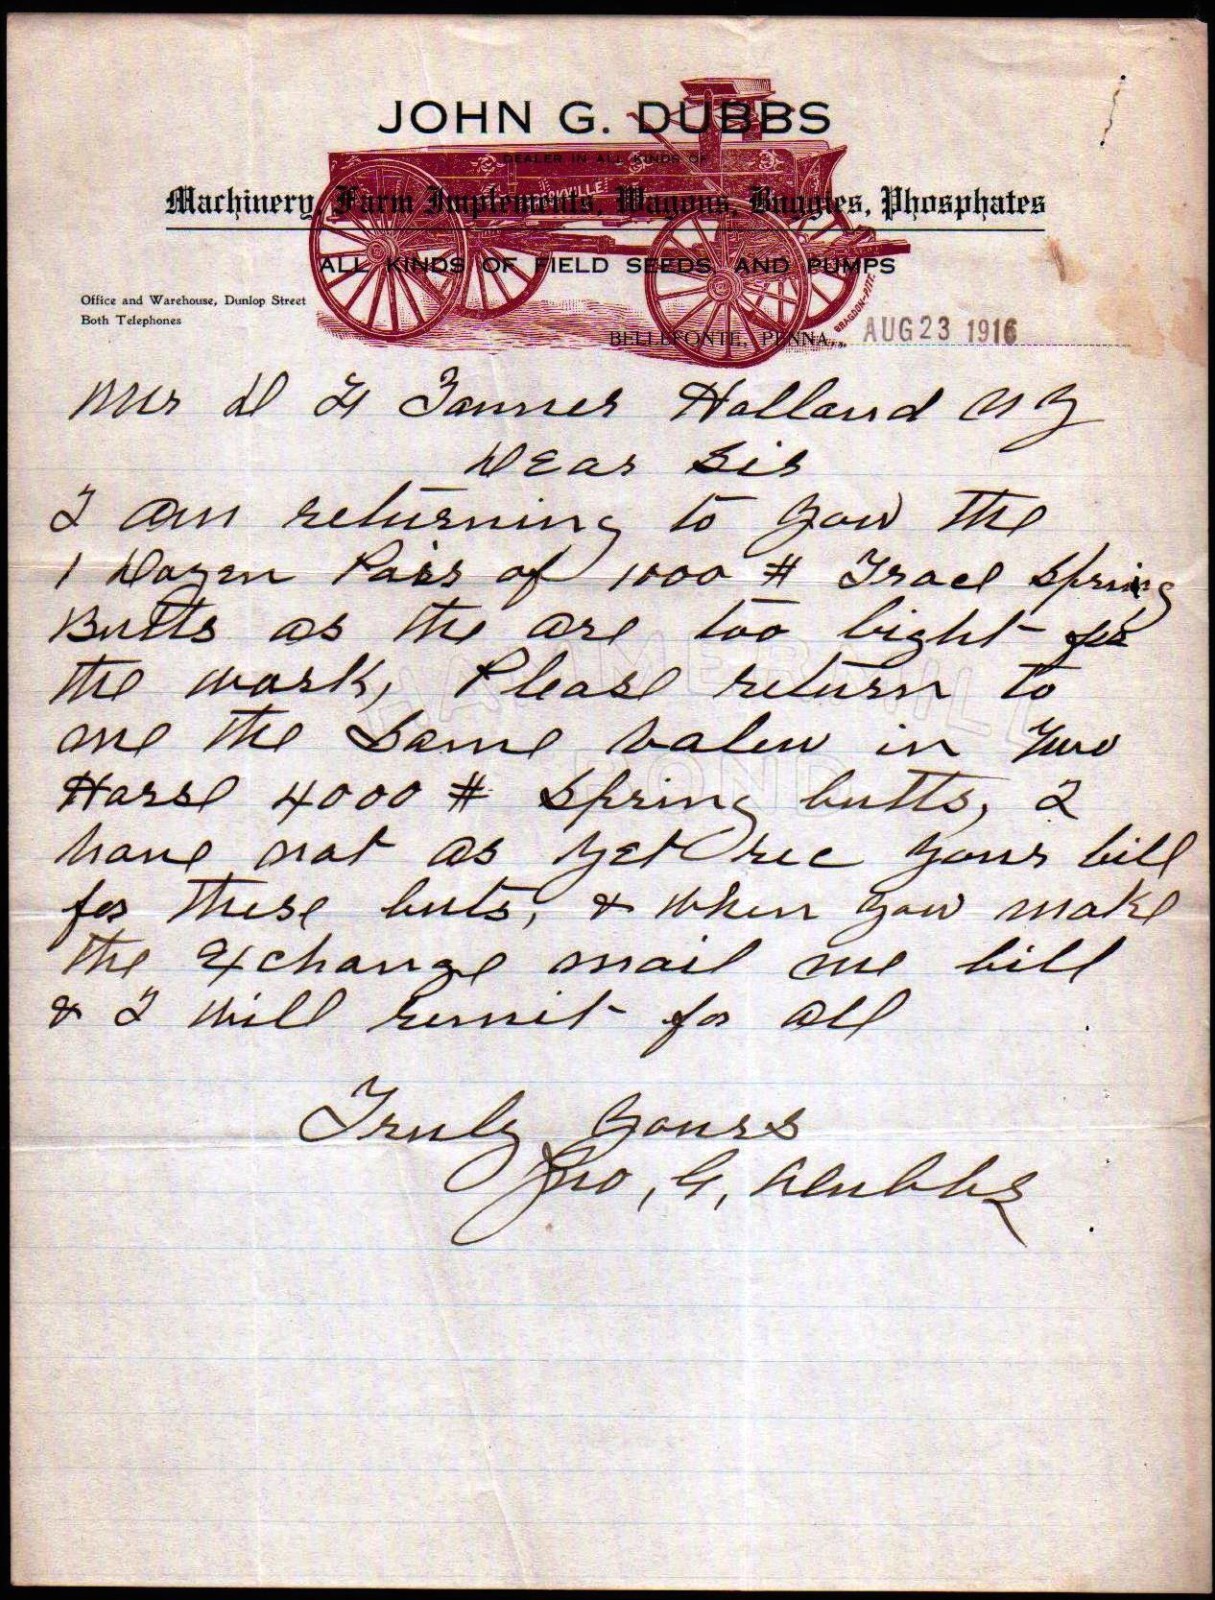 JOHN G. DUBBS
DEALER IN ALL KINDS OF
Machinery, Farm Implements, Wagons, Buggies, Phosphates
ALL KINDS OF FIELD SEEDS AND PUMPS
Office and Warehouse, Dunlop Street
Both Telephones
BRAGDON-PITT.
BELLEFONTE, PENNA., AUG 23 1916
Mr D H Tanner Holland N Y
Dear Sir
I am returning to you the
1 Dozen Pair of 1000 # Spring
Butts as the are too light for
the work, Please return to
me the Same valew in Two
Horse 4000 # Spring butts, I
have not as yet rec yours bill
for these buts, & when you make
the exchange mail me bill
& I will remit for all
Truly Yours
Jno, G, Dubbs
HAMMERMILL
BOND